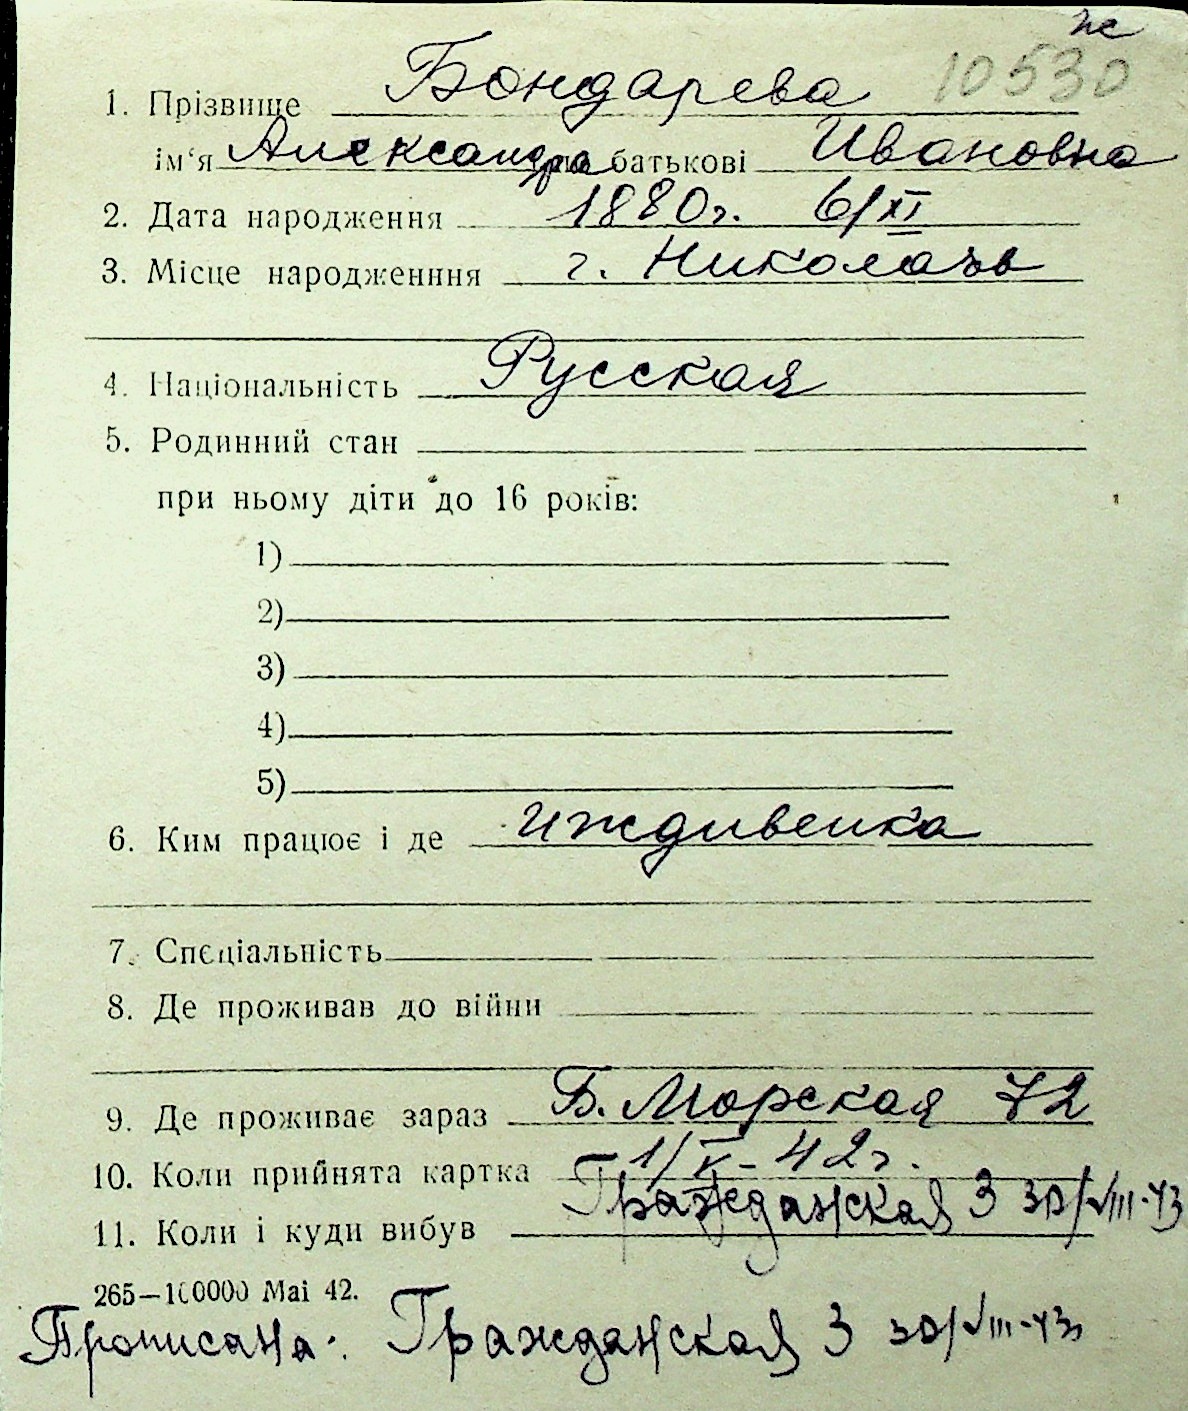 10530
1. Прізвище Бондарева
ім‘я Александра по батькові Ивановна
2. Дата народження 1880г. 6/XI
3. Місце народженння г. Николаѣв
4. Національність Русская
5. Родинний стан
при ньому діти до 16 років:
1)
2)
3)
4)
5)
6. Ким працює і де иждивенка
7. Спєціальність
8. Де проживав до війни
9. Де проживає зараз Б. Морская 72
10. Коли прийнята картка 1/X-42г.
11. Коли і куди вибув Гражданская 3 30/VIII-43
265—100000 Mai 42.
Прописана: Гражданская 3 30/VIII-43